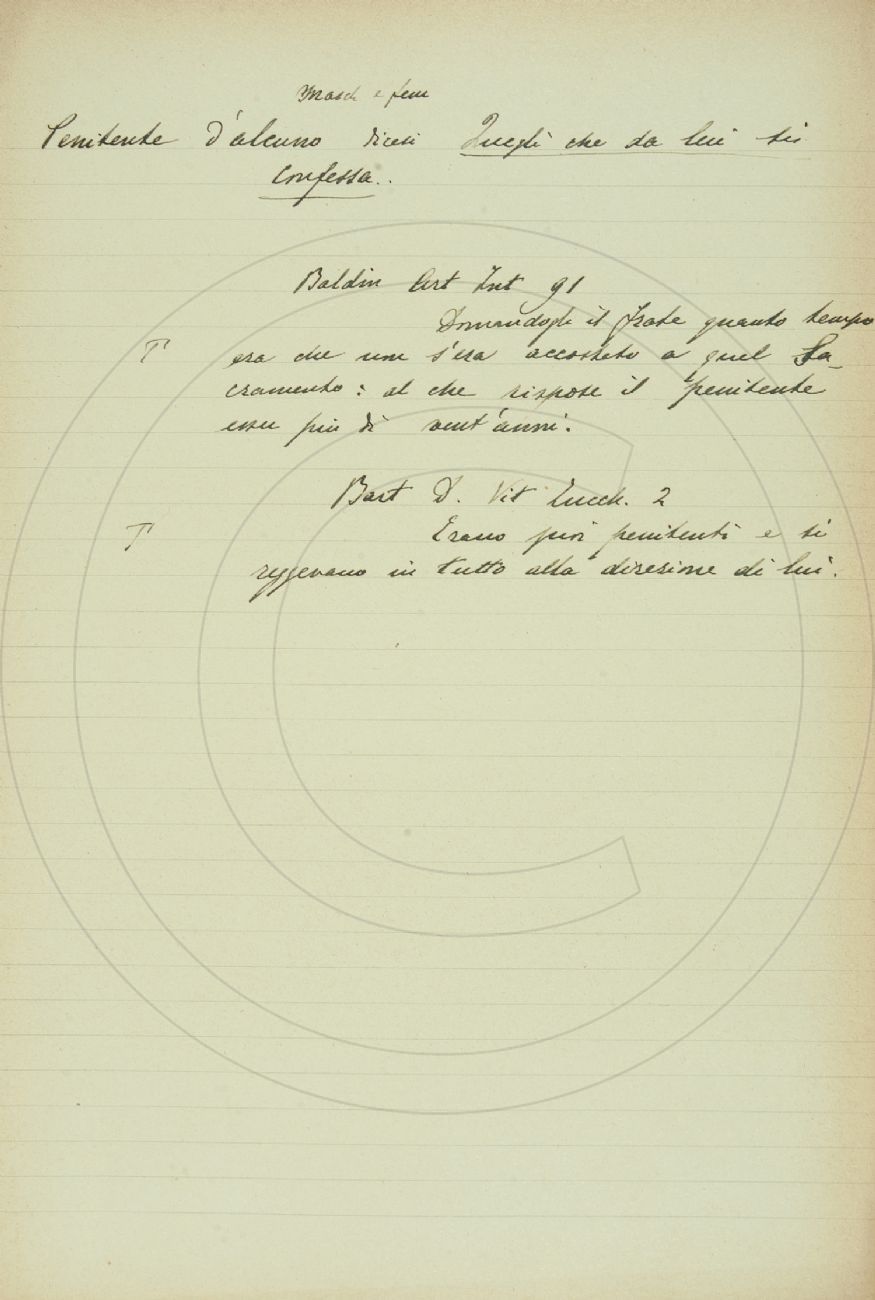 Masch e fem
Penitente D'alcuno dicesi Quegli che da lui si
Confessa..
Baldin Art Int 91
Domandogli il frate quanto tempo
T era che non s'era accostato a quel Sa-
cramento: al che rispose il penitente
esser più di vent'anni.
Bart D. Vit 2
T Erano suoi penitenti e si
reggevano in tutto alla direzione di lui.